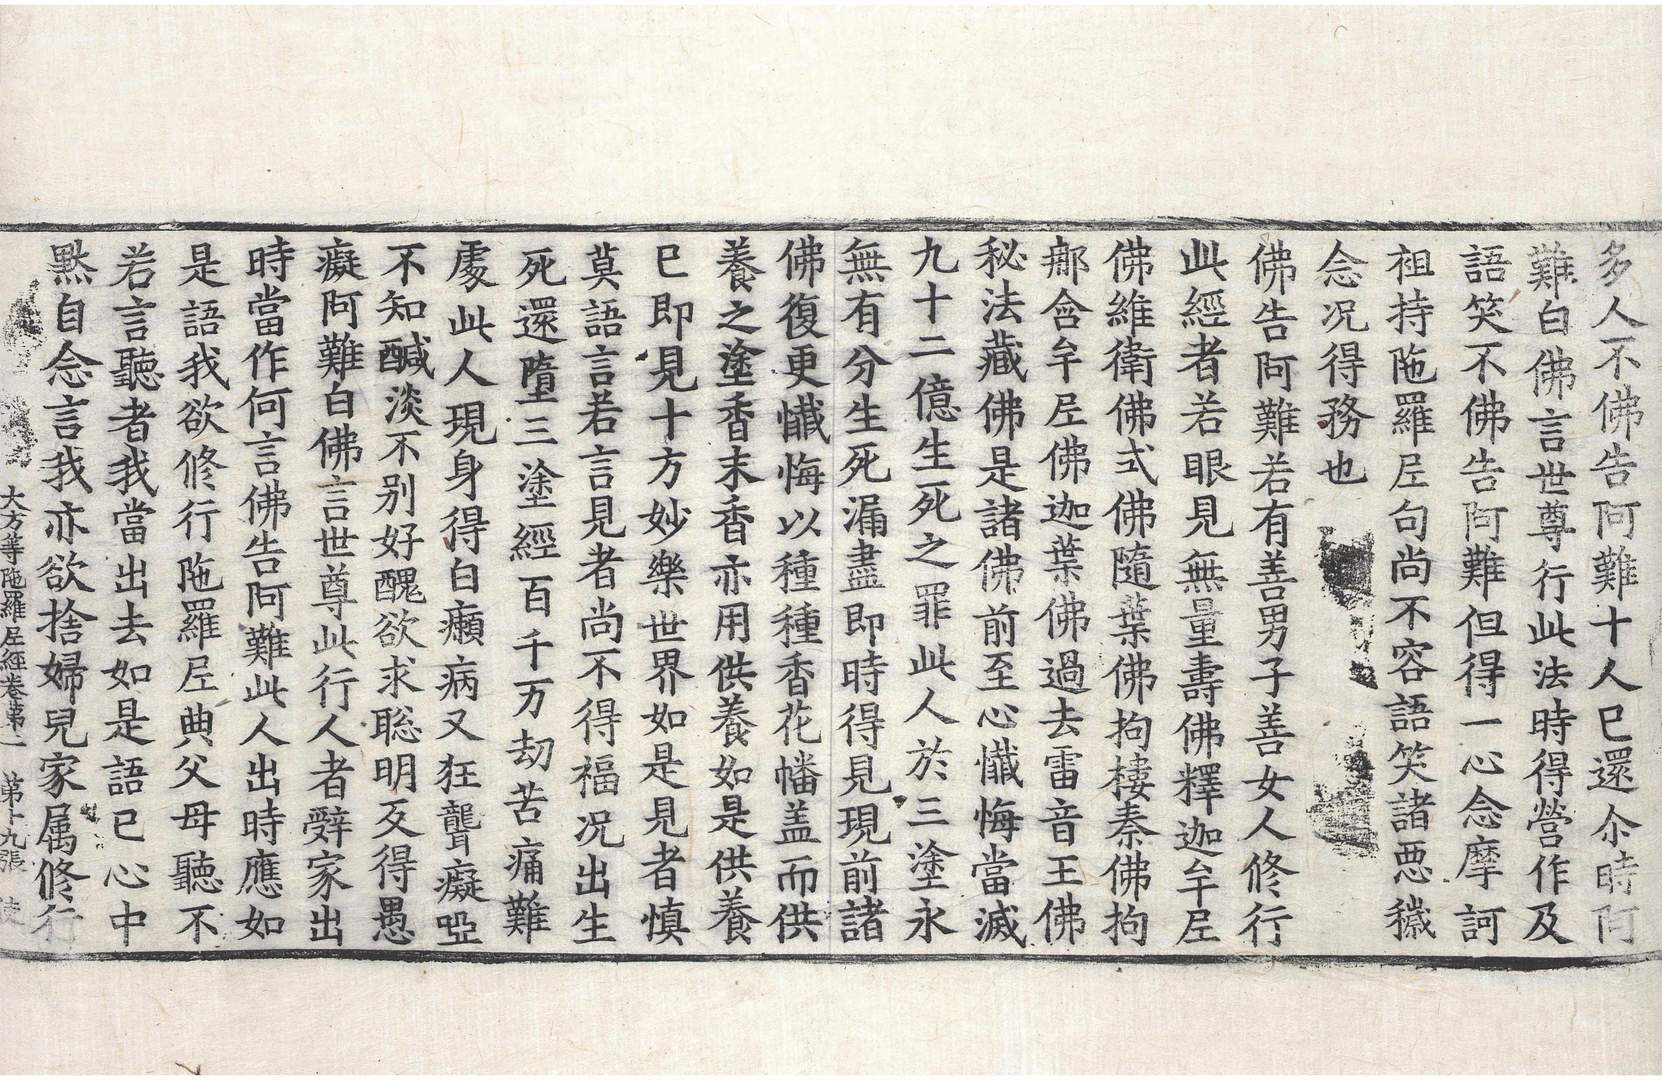 多人不佛告阿難十人已還尒時阿
難白佛言世尊行此法時得營作及
語笑不佛告阿難但得一心念摩訶
祖持陁羅𡰱句尚不容語笑諸惡穢
念况得務也
佛告阿難若有善男子善女人修行
此經者若眼見無量壽佛釋迦牟𡰱
佛維衛佛式佛隨葉佛拘棲秦佛拘
那含牟𡰱佛迦葉佛過去雷音王佛
秘法藏佛是諸佛前至心懺悔當滅
九十二億生死之罪此人於三塗永
無有分生死漏盡即時得見現前諸
佛復更懺悔以種種香花幡盖而供
養之塗香末香亦用供養如是供養
已即見十方妙樂世界如是見者慎
莫語言若言見者尚不得福况出生
死還墮三塗經百千万劫苦痛難
處此人現身得白癩病又狂聾癡啞
不知醎淡不別好醜欲求聡明反得愚
癡阿難白佛言世尊此行人者辤家出
時當作何言佛告阿難此人出時應如
是語我欲修行陁羅𡰱典父母聽不
若言聽者我當出去如是語已心中
黙自念言我亦欲捨婦兒家属修行
大方等陁羅𡰱經卷第一 第十九張